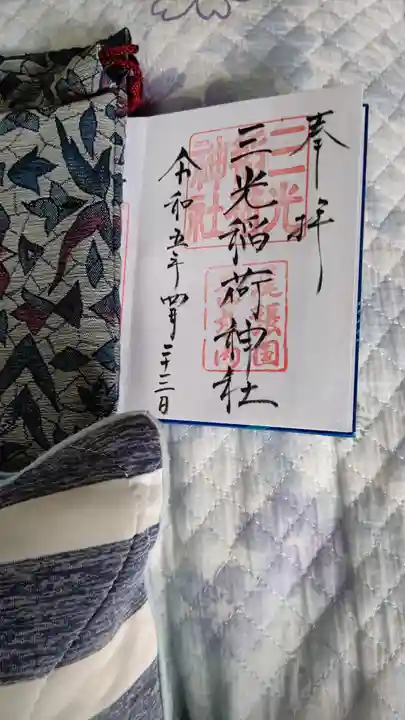 奉拝
三光稲荷神社
令和五年四月二十三日
三光
稲荷
神社
尾張国